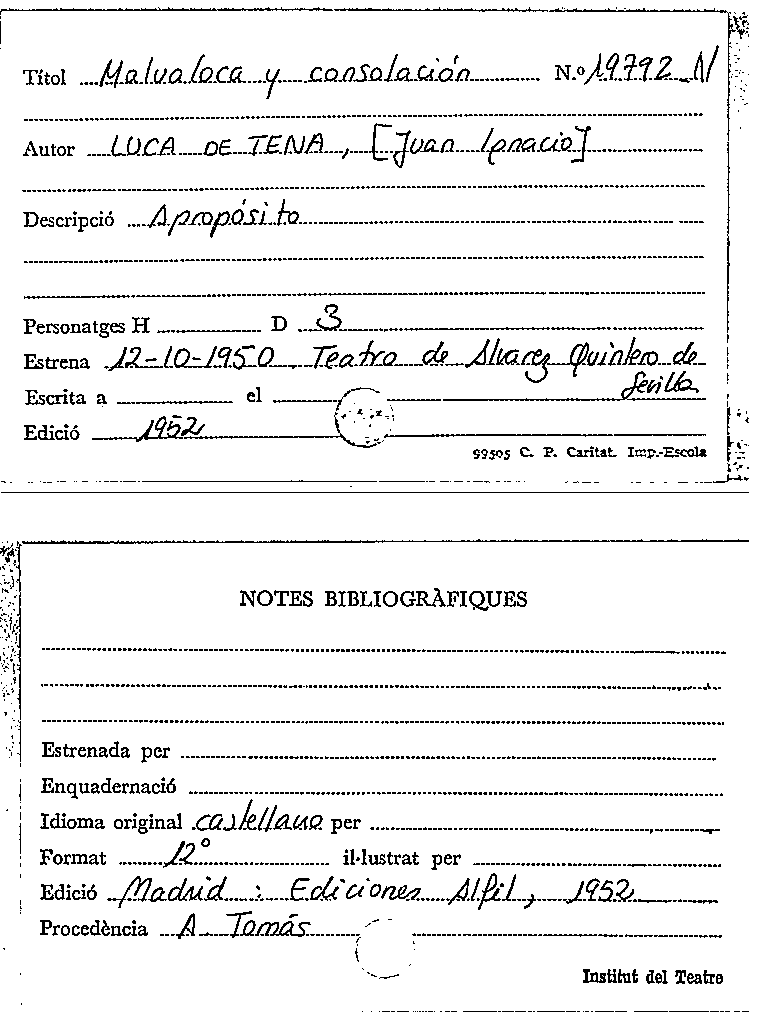 Títol Malvaloca y consolación N.º 19792-N
Autor LUCA DE TENA, [Juan Ignacio]
Descripció Apropósito
Personatges H D 3
Estrena 12-10-1950. Teatro de Alvarez Quintero de
Sevilla
Escrita a el
Edició 1952
99505 C. P. Caritat. Imp.-Escola
NOTES BIBLIOGRÀFIQUES
Estrenada per
Enquadernació
Idioma original castellano per
Format 12º il·lustrat per
Edició Madrid : Ediciones Alfil, 1952
Procedència A. Tomás
Institut del Teatre